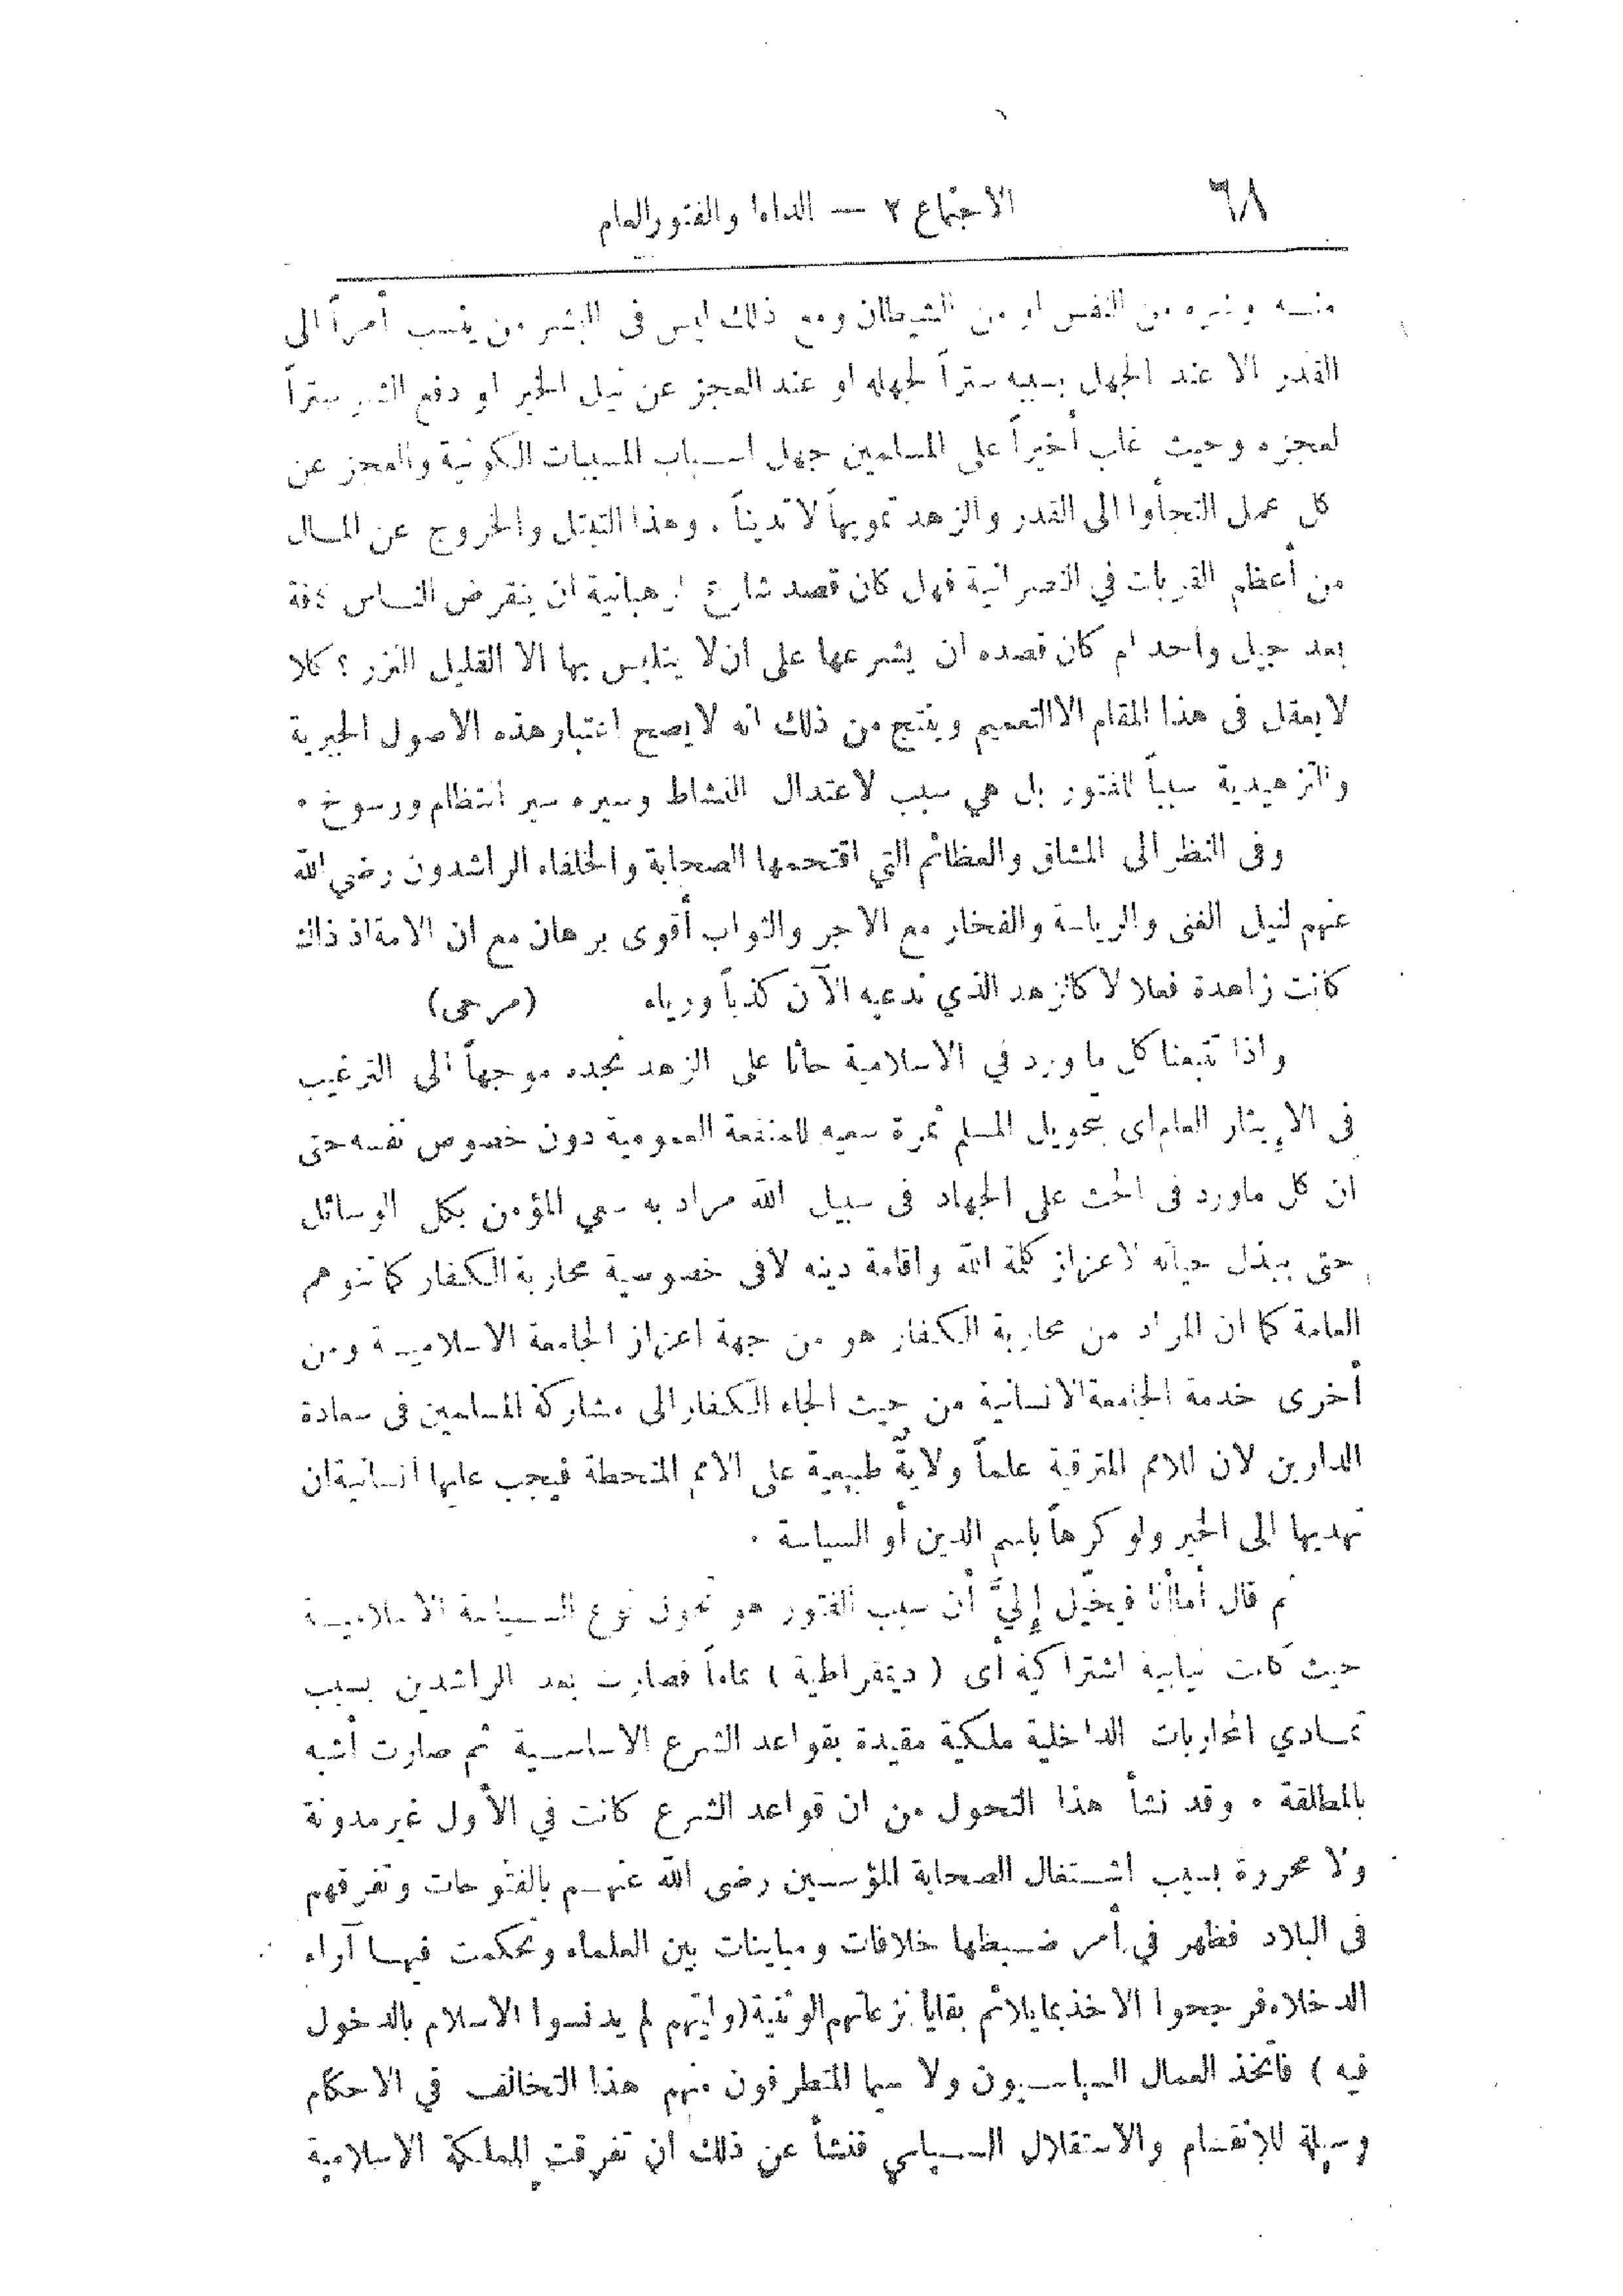 ٦٨
الاجتماع ٢ — الداء او الفتور العام
منه وغيره من النفس او من الشيطان ومع ذلك ليس فى البشر من ينسب أمراً الى
القدر الا عند الجهل بسببه ستراً لجهله او عند العجز عن نيل الخير او دفع الشر ستراً
لعجزه وحيث غلب أخيراً على المسلمين جهل اسباب المسببات الكونية والعجز عن
كل عمل التجأوا الى القدر والزهد تمويهاً لا تديناً . وهذا التبتل والخروج عن المال
من أعظم القربات في النصرانية فهل كان قصد شارع الرهبانية ان ينقرض الناس كافة
بعد جيل واحد ام كان قصده ان يشرعها على ان لا يتلبس بها الا القليل النزر ؟ كلا
لا يعقل فى هذا المقام الا التعميم وينتج من ذلك انه لا يصح اعتبار هذه الاصول الجبرية
والتزهيدية سبباً للفتور بل هي سبب لاعتدال النشاط وسيره سير انتظام ورسوخ .
وفى النظر الى المشاق والعظائم التي اقتحمها الصحابة والخلفاء الراشدون رضي الله
عنهم لنيل الغنى والرياسة والفخار مع الاجر والثواب أقوى برهان مع ان الامة اذ ذاك
كانت زاهدة فعلا لا كالزهد الذي ندعيه الآن كذباً ورياء (مرحى)
واذا تتبعنا كل ما ورد في الاسلامية حاثا على الزهد نجده موجهاً الى الترغيب
فى الايثار العام اى بتحويل المسلم ثمرة سعيه للمنفعة العمومية دون خصوص نفسه حتى
ان كل ماورد فى الحث على الجهاد فى سبيل الله مراد به سعي المؤمن بكل الوسائل
حتى ببذل حياته لاعزاز كلمة الله واقامة دينه لافى خصوصية محاربة الكفار كما تتوهم
العامة كما ان المراد من محاربة الكفار هو من جهة اعزاز الجامعة الاسلامية ومن
أخرى خدمة الجامعة الانسانية من حيث الجاء الكفار الى مشاركة المسلمين فى سعادة
الدارين لان للامم المترقية علماً ولايةً طبيعية على الامم المنحطة فيجب عليها انسانية ان
تهديها الى الخير ولو كرهاً باسم الدين أو السياسة .
ثم قال أما أنا فيخيّل إليَّ أن سبب الفتور هو تحول نوع السياسة الاسلامية
حيث كانت نيابية اشتراكية أى ( ديمقراطية ) تماماً فصارت بعد الراشدين بسبب
تمادي المحاربات الداخلية ملكية مقيدة بقواعد الشرع الاساسية ثم صارت أشبه
بالمطلقة . وقد نشأ هذا التحول من ان قواعد الشرع كانت في الأول غير مدونة
ولا محررة بسبب اشتغال الصحابة المؤسسين رضى الله عنهم بالفتوحات وتفرقهم
فى البلاد فظهر في أمر ضبطها خلافات ومباينات بين العلماء وتحكمت فيها آراء
الدخلاء فرجحوا الاخذ بما يلائم بقايا نزعاتهم الوثنية (وليتهم لم يدنسوا الاسلام بالدخول
فيه ) فاتخذ العمال السياسيون ولا سيما المتطرفون منهم هذا التخالف في الاحكام
وسيلة للانقسام والاستقلال السياسي فنشأ عن ذلك ان تفرقت المملكة الاسلامية